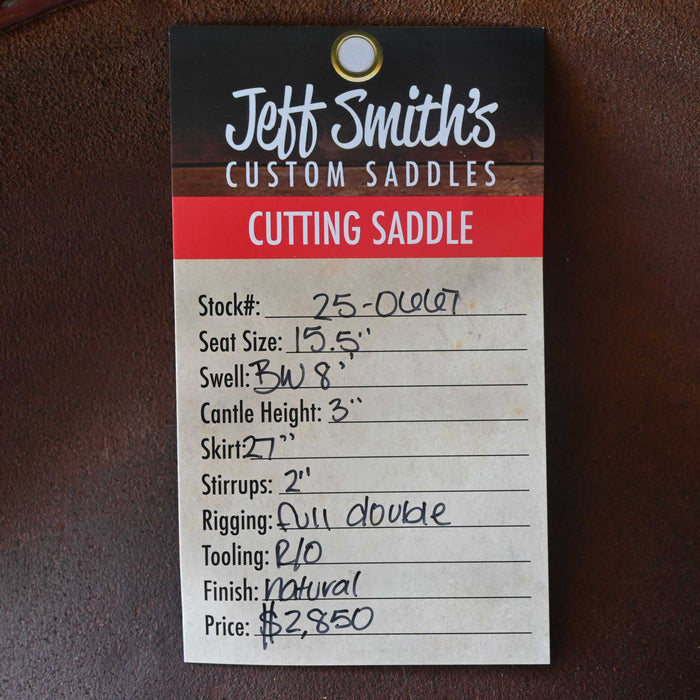 Jeff Smith's
CUSTOM SADDLES
CUTTING SADDLE
Stock#: 25-0667
Seat Size: 15.5"
Swell: BW 8"
Cantle Height: 3"
Skirt: 27"
Stirrups: 2"
Rigging: full double
Tooling: R/O
Finish: natural
Price: $2,850